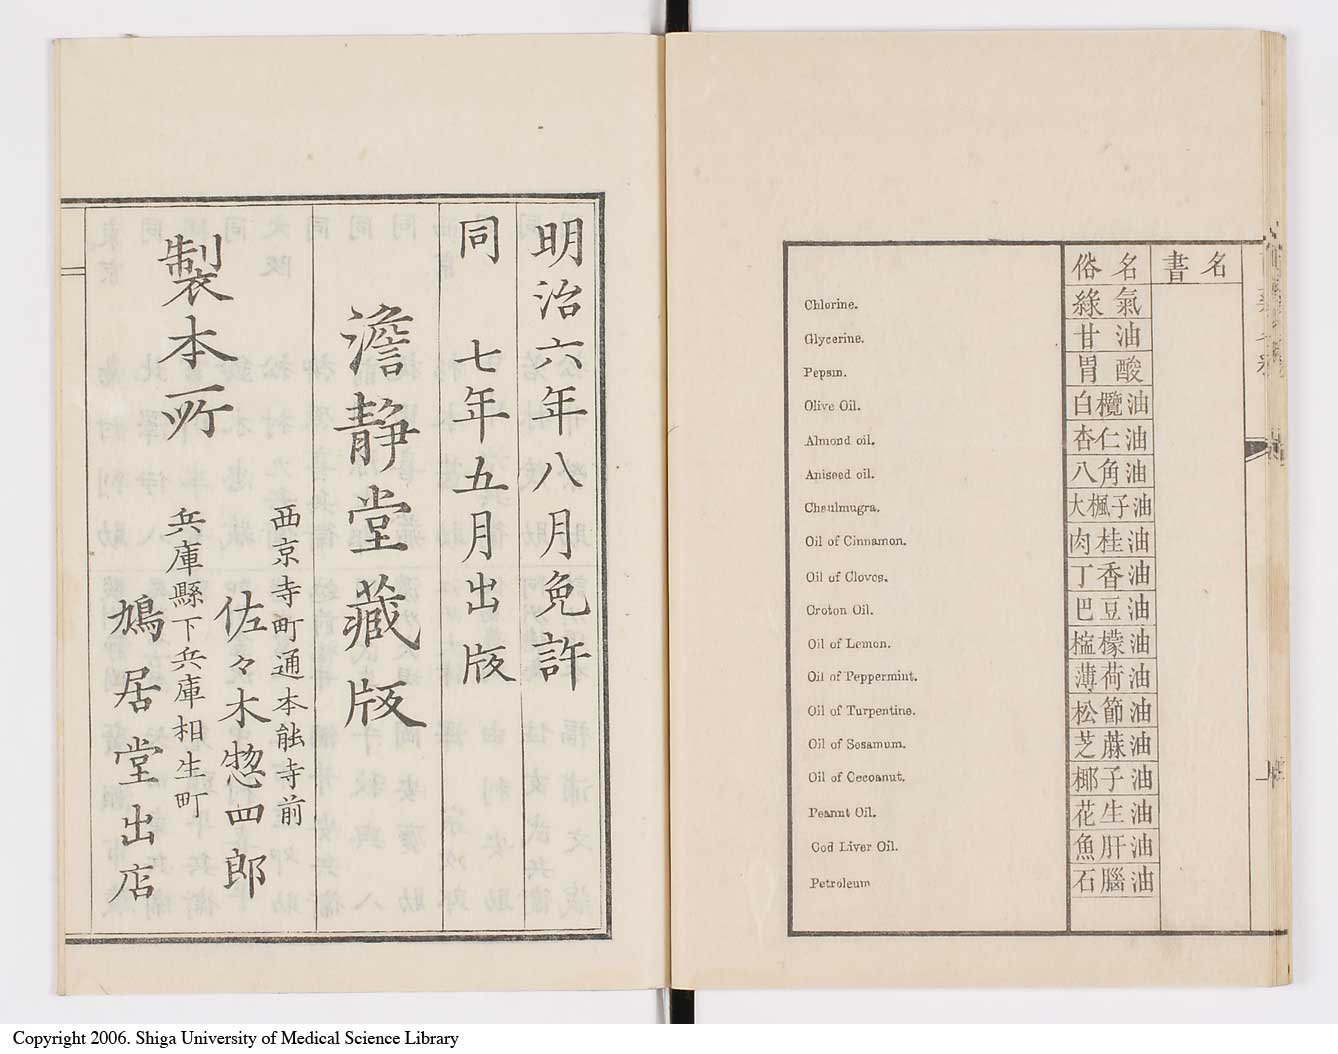 名書
俗名
Chlorine. 綠氣
Glycerine. 甘油
Pepsin. 胃酸
Olive Oil. 白欖油
Almond oil. 杏仁油
Aniseed oil. 八角油
Chaulmugra. 大楓子油
Oil of Cinnamon. 肉桂油
Oil of Cloves. 丁香油
Croton Oil. 巴豆油
Oil of Lemon. 檸檬油
Oil of Peppermint. 薄荷油
Oil of Turpentine. 松節油
Oil of Sesamum. 芝蔴油
Oil of Cocoanut. 椰子油
Peanut Oil. 花生油
Cod Liver Oil. 魚肝油
Petroleum 石腦油
明治六年八月免許
同 七年五月出版
澹靜堂藏版
製本所
西京寺町通本能寺前
佐々木惣四郎
兵庫縣下兵庫相生町
鳩居堂出店
Copyright 2006. Shiga University of Medical Science Library